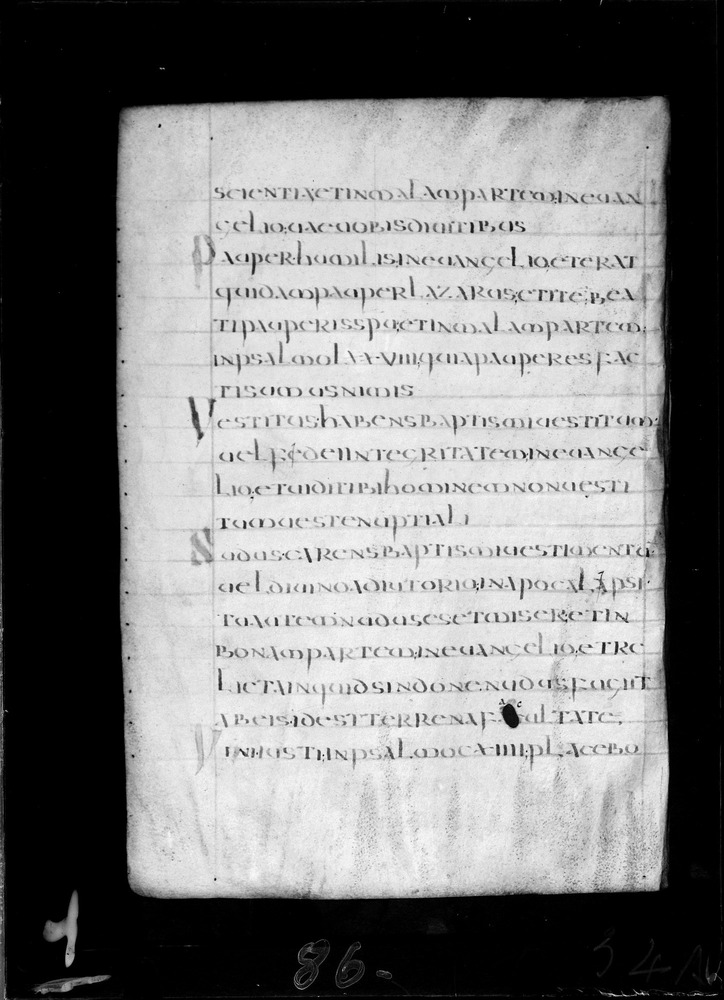 SCIENTIXETINMALAMPARTEM;INEUAN
GELIO;UAEUOBISDIUITIBUS
PAUPER·HUMILIS;INEUANGELIO;ETERAT
QUIDAMPAUPERLAZARUS;ETITE;BEA
TIPAUPERISSPU;ETINMALAMPARTEM;
INPSALMOLXXVIII;QUIAPAUPERESFAC
TISUMUSNIMIS
VESTITUSHABENSBAPTISMIUESTITUM;
UELFIDEIINTEGRITATEM;INEUANGE
LIO;ETUIDITIBIHOMINEMNONUESTI
TUMUESTENUPTIALI
NUDUS·CARENSBAPTISMIUESTIMENTO
UELDIUINOADIUTORIO;INAPOCALYPSI·
TUAUTEMNUDUSESETMISER;ETIN
BONAMPARTEM;INEUANGELIO;ETRE
LICTAINQUIDSINDONENUDUSFUGIIT
ABEIS;IDESTTERRENAFACULTATE;
VINIUSTI;INPSALMOCXIIII;PLACEBO
86-